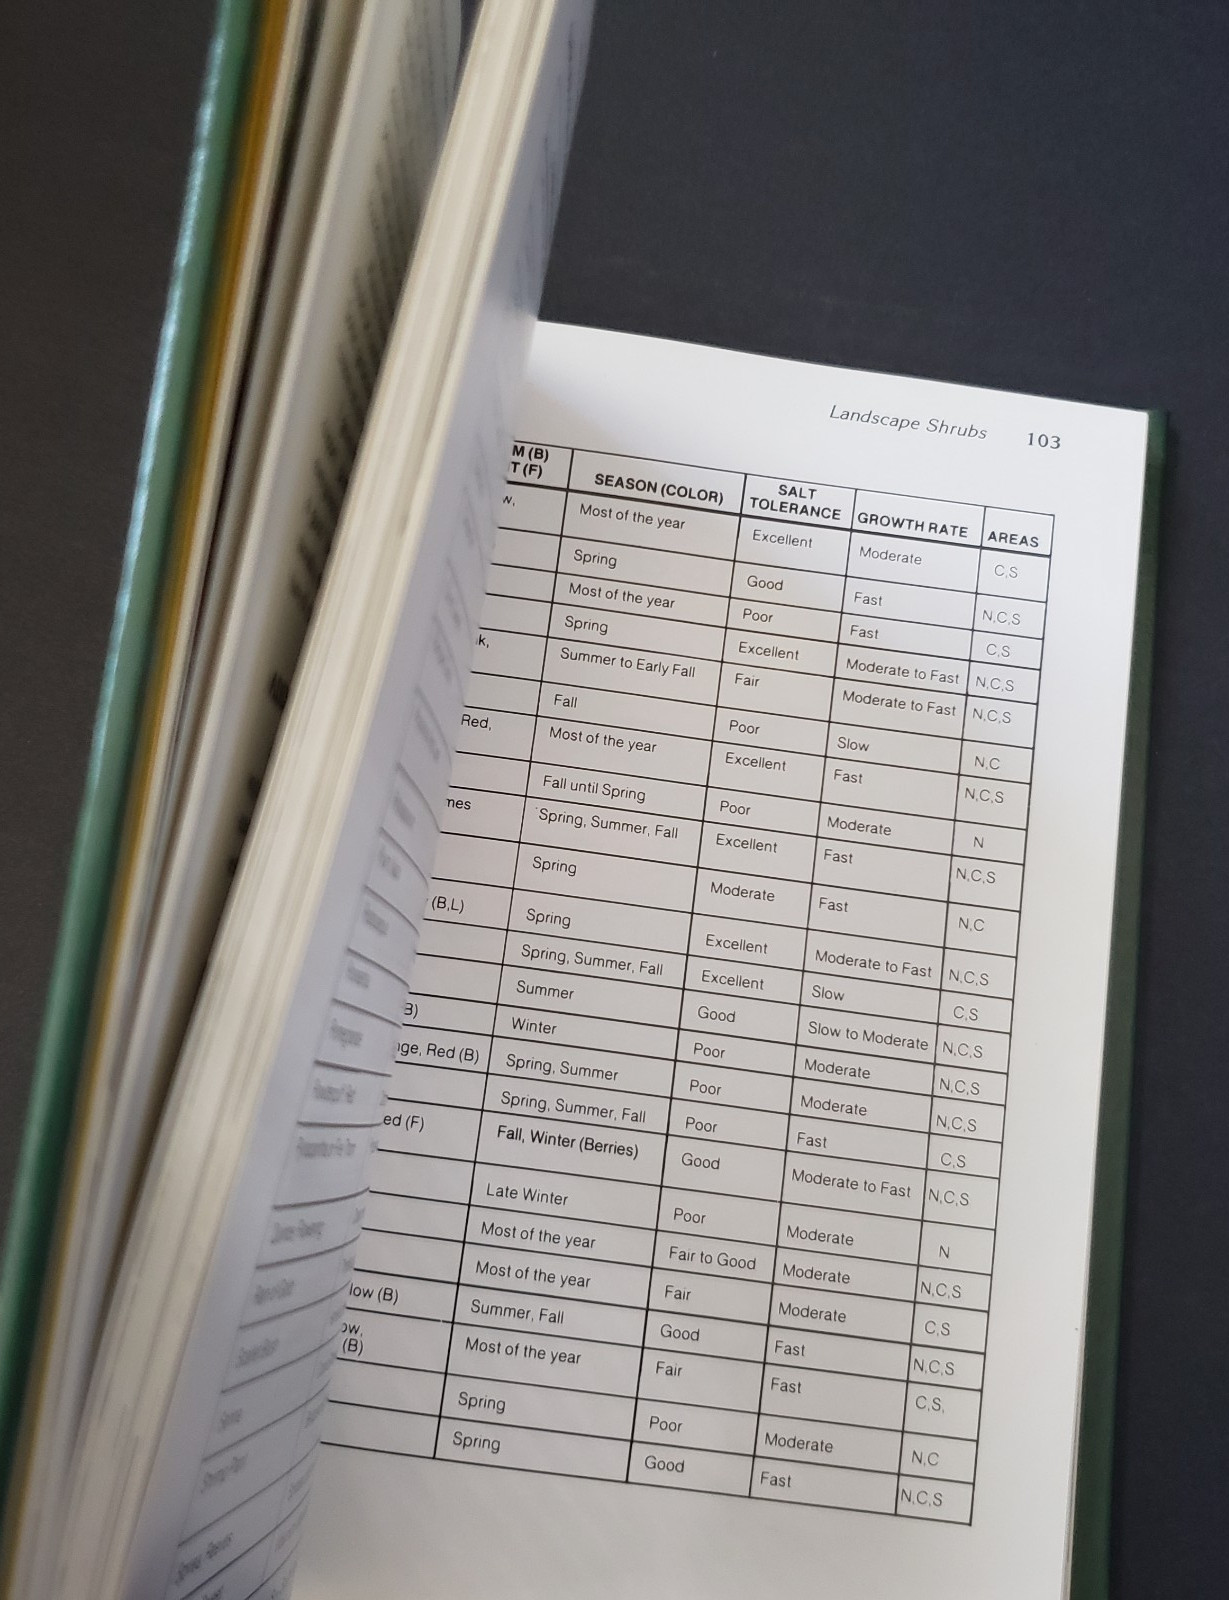 Landscape Shrubs 103
M (B)
T (F) SEASON (COLOR) SALT TOLERANCE GROWTH RATE AREAS
w, Most of the year Excellent Moderate C,S
Spring Good Fast N,C,S
Most of the year Poor Fast C,S
Spring Excellent Moderate to Fast N,C,S
k, Summer to Early Fall Fair Moderate to Fast N,C,S
Fall Poor Slow N,C
Red, Most of the year Excellent Fast N,C,S
Fall until Spring Poor Moderate N
mes Spring, Summer, Fall Excellent Fast N,C,S
Spring Moderate Fast N,C
(B,L) Spring Excellent Moderate to Fast N,C,S
Spring, Summer, Fall Excellent Slow C,S
Summer Good Slow to Moderate N,C,S
B) Winter Poor Moderate N,C,S
nge, Red (B) Spring, Summer Poor Moderate N,C,S
Spring, Summer, Fall Poor Fast C,S
ed (F) Fall, Winter (Berries) Good Moderate to Fast N,C,S
Late Winter Poor Moderate N
Most of the year Fair to Good Moderate N,C,S
Most of the year Fair Moderate C,S
low (B) Summer, Fall Good Fast N,C,S
ow,
(B) Most of the year Fair Fast C,S,
Spring Poor Moderate N,C
Spring Good Fast N,C,S